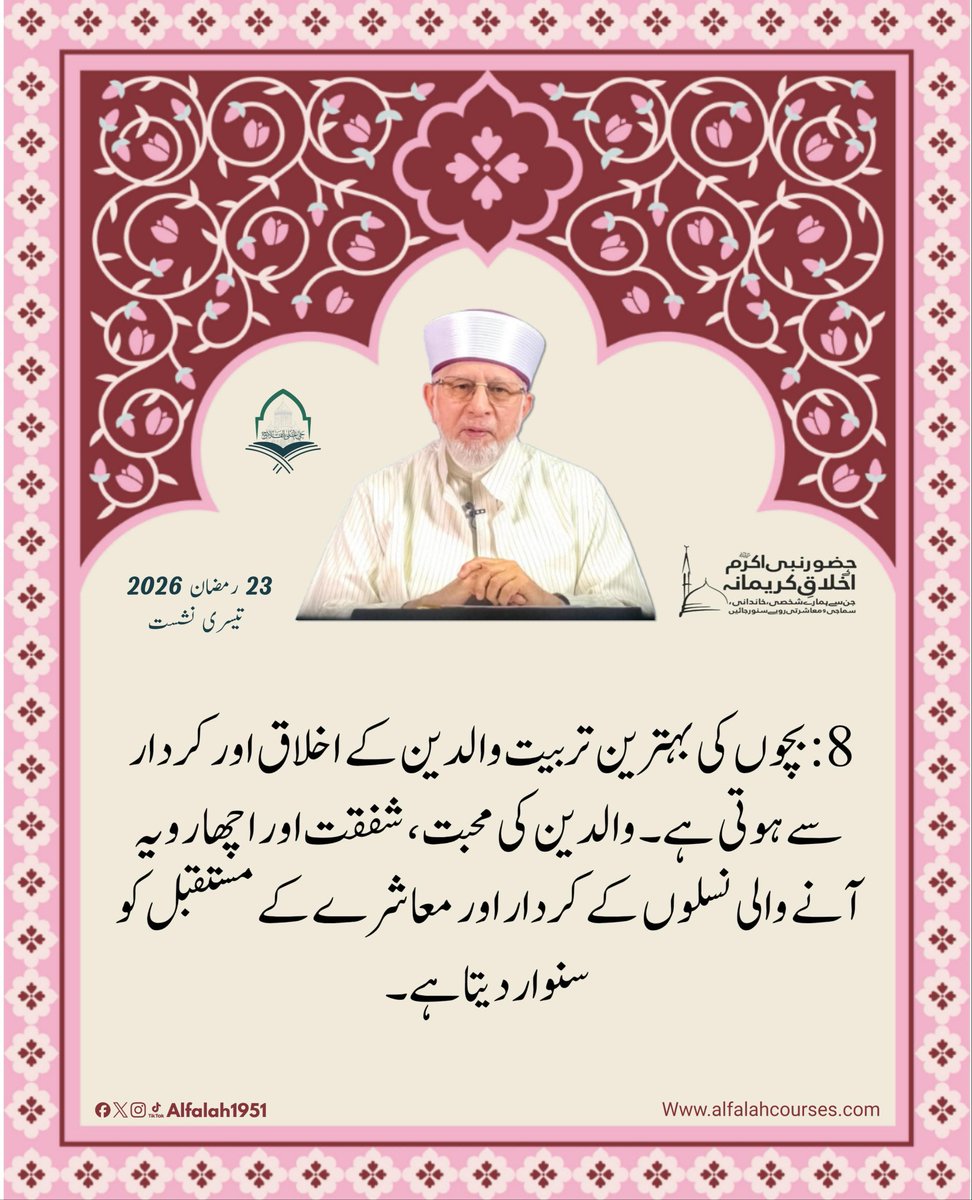 23 رمضان 2026
تیسری نشست
حضور نبی اکرم ﷺ
اخلاقِ کریمانہ
جن سے ہمارے شخصی، خاندانی،
سماجی و معاشرتی رویے سنور جائیں
8: بچوں کی بہترین تربیت والدین کے اخلاق اور کردار
سے ہوتی ہے۔ والدین کی محبت، شفقت اور اچھا رویہ
آنے والی نسلوں کے کردار اور معاشرے کے مستقبل کو
سنوار دیتا ہے۔
TikTok Alfalah1951
Www.alfalahcourses.com